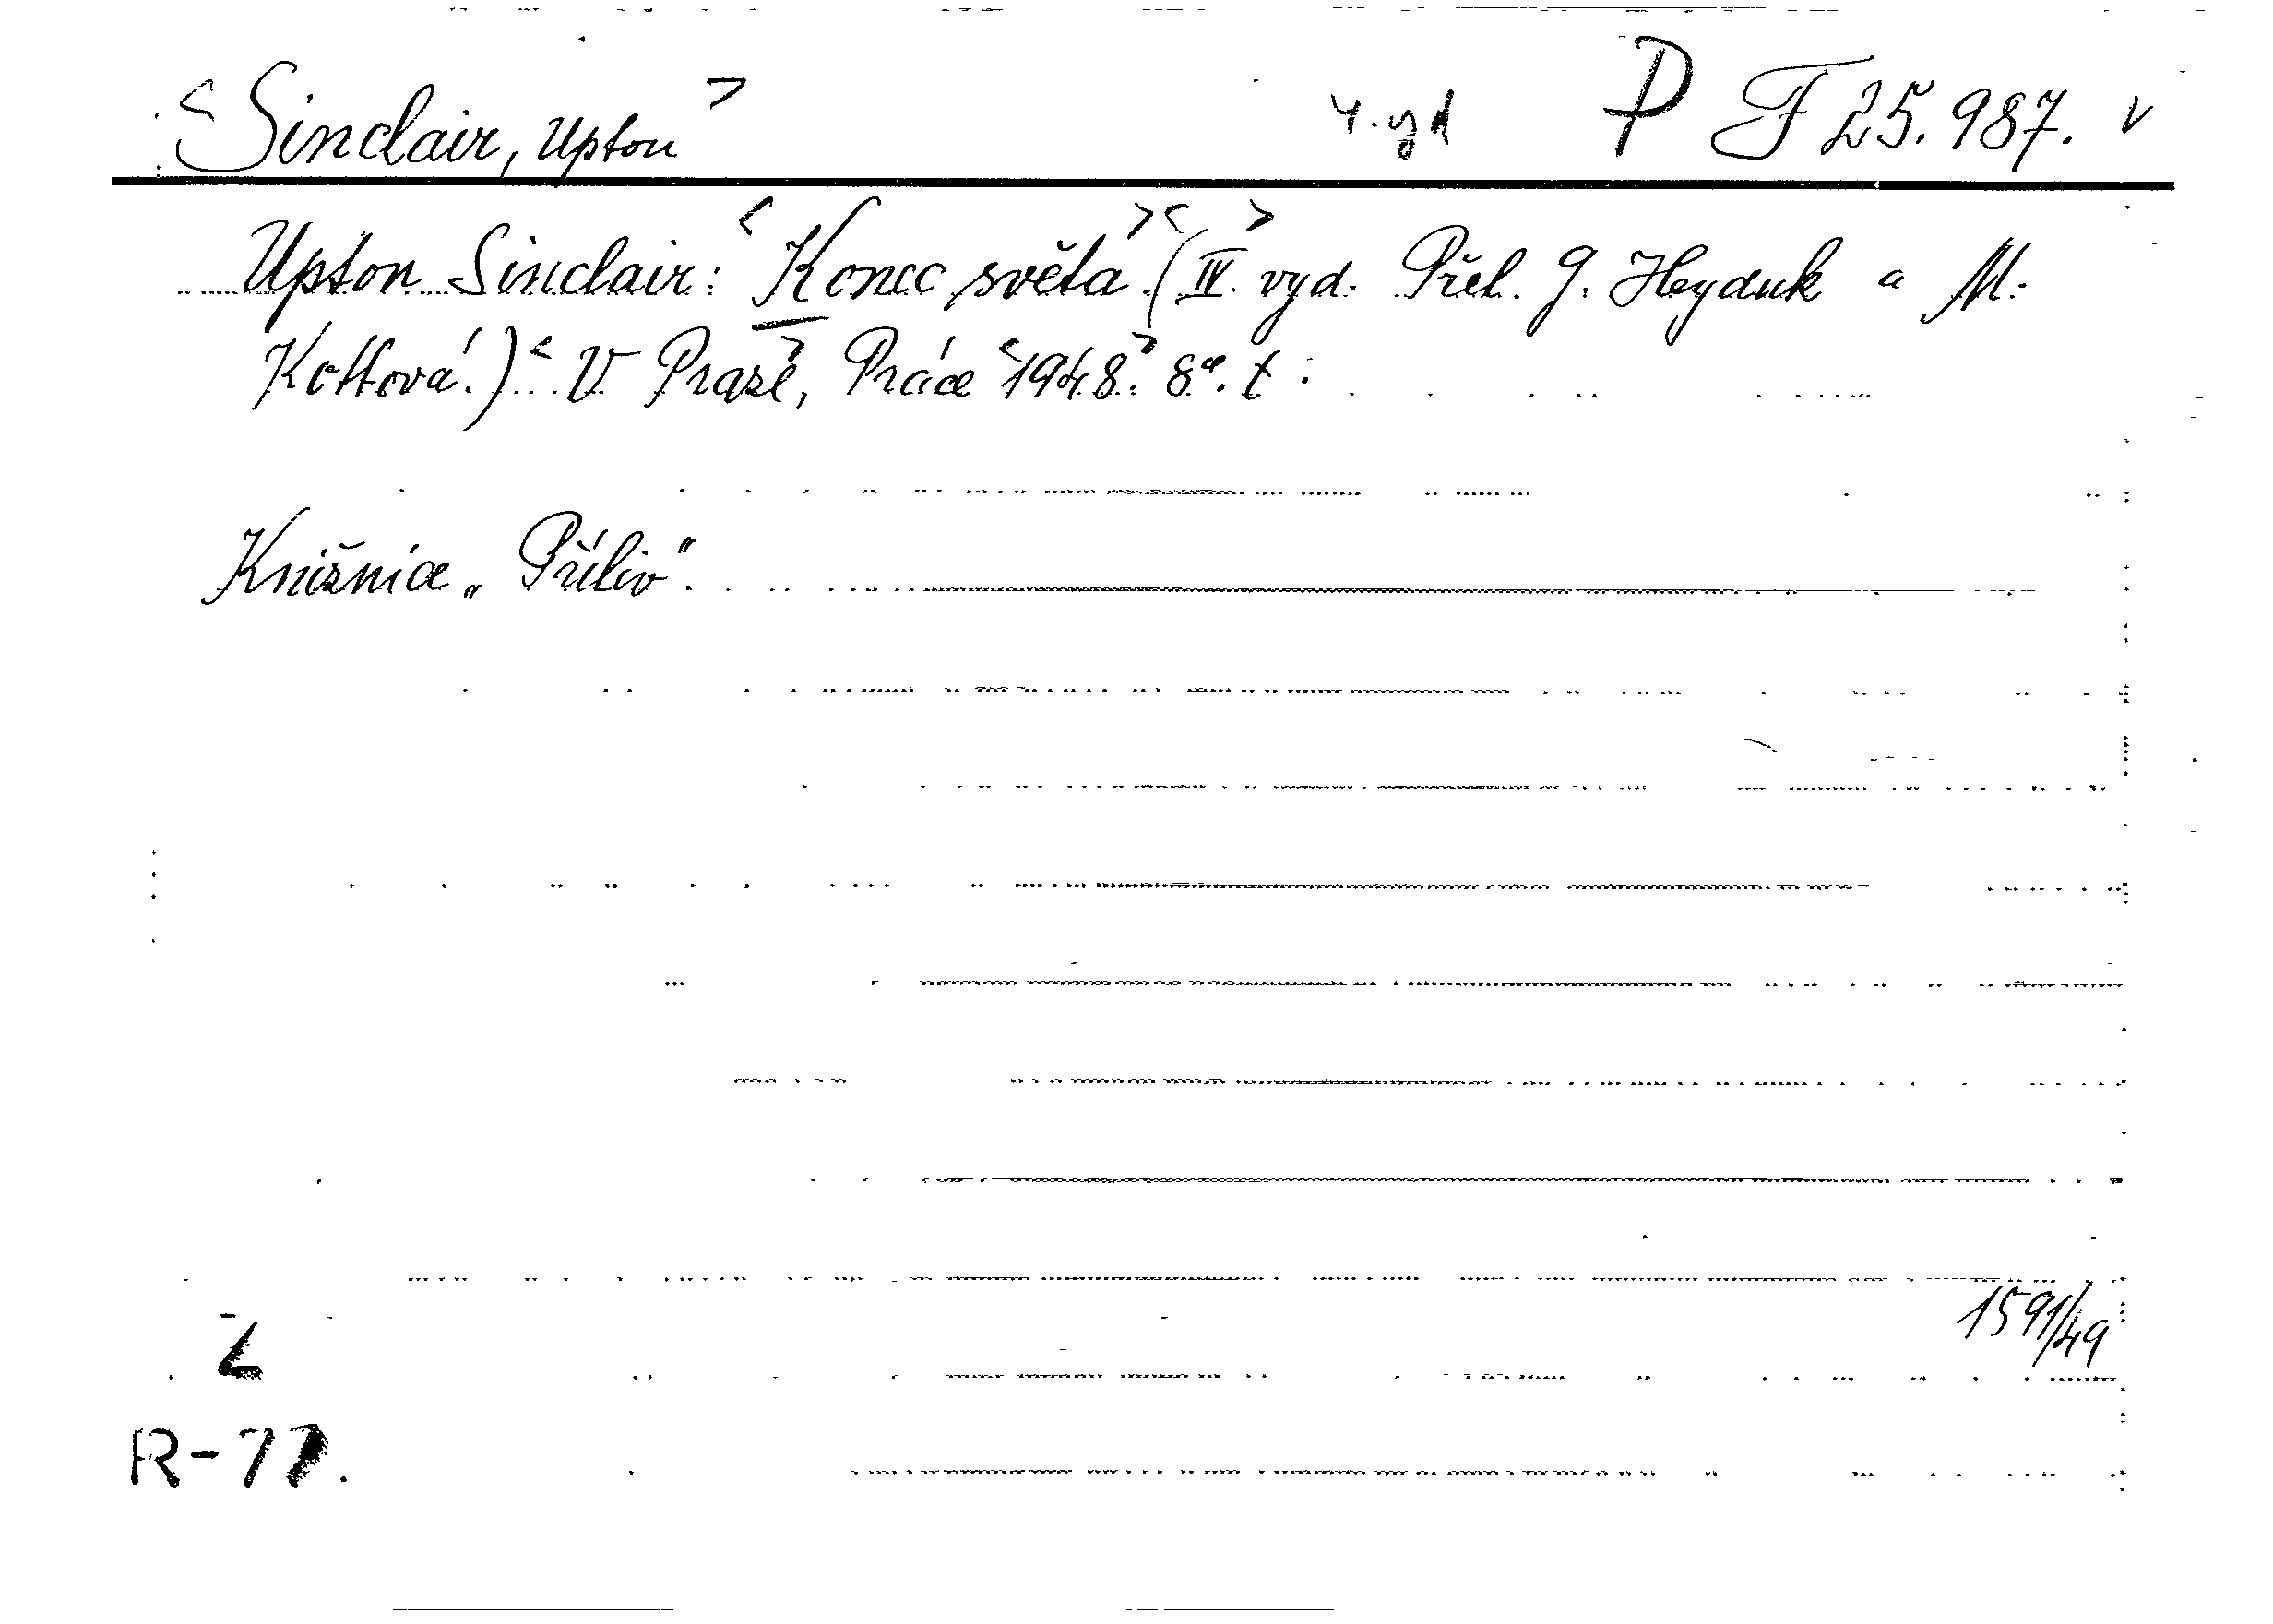 <Sinclair, Upton> 4. yd P F 25.987. v
Upton Sinclair: <Konec světa.><(IV.> vyd. Přel. J. Heyduk a M.
Kottová.)< V Praze>, Práce <1948.> 8°. t.
Knižnice „Příliv".
1591/49
Z
R-77.